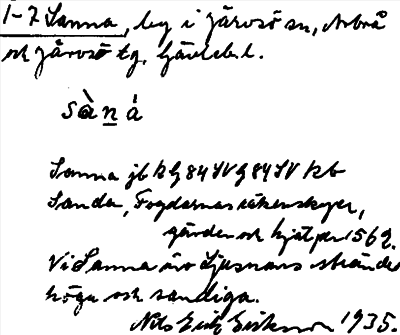 1-7 Sanna, by i Järvsö sn, Arbrå
och Järvsö tg, Gävlebl.
sàná
Sanna jb kg 84 SV g 84 SV kb
Sanda, Fogdernas räkenskaper,
gärder och hjälper 1562.
Vi Sanna äro Ljusnans stränder
höga och sandiga.
Nils Erik Eriksson 1935.